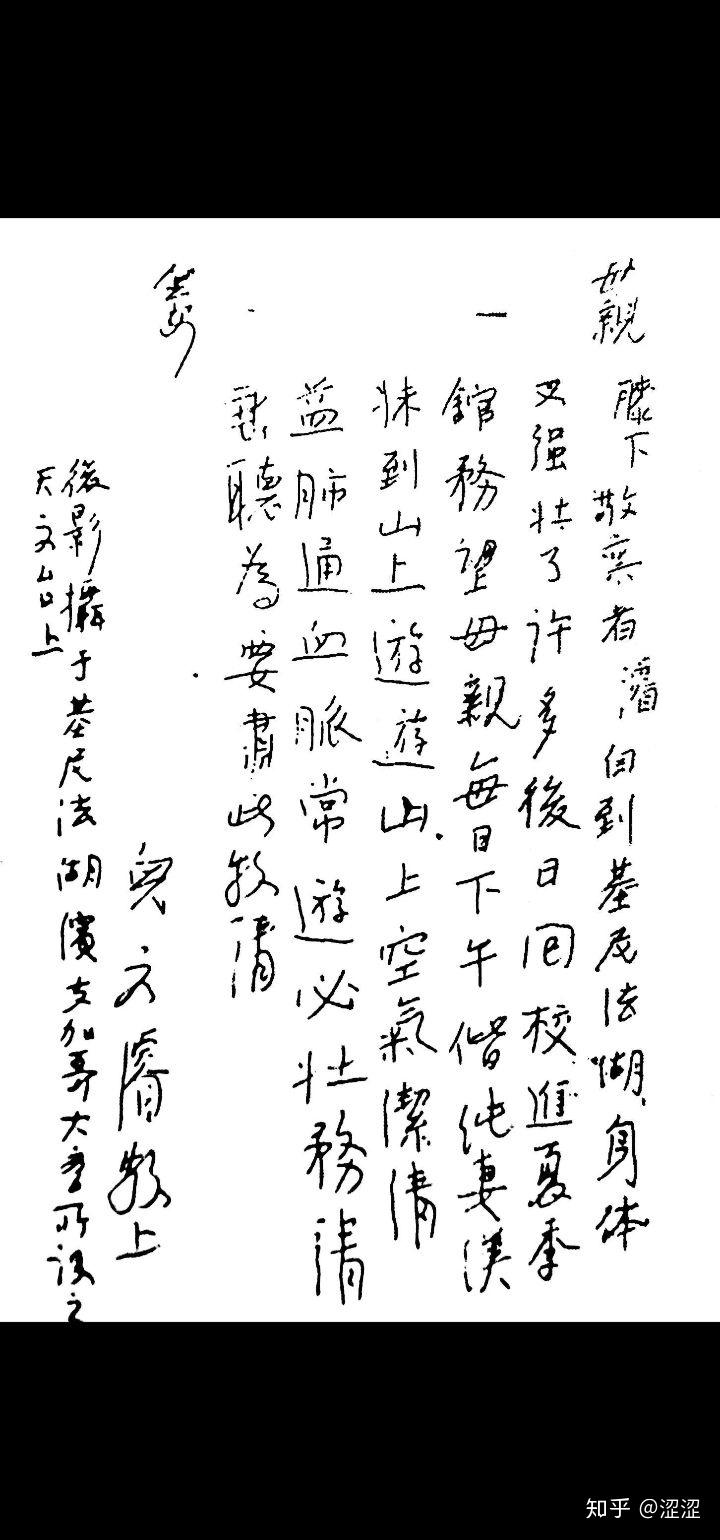 母親
膝下敬稟者濬自到基尼法湖身体
又强壮了許多後日囘校進夏季
館務望母親每日下午偕純妻漢
妹到山上遊遊山上空氣潔清
益肺通血脈常遊必壮務請
垂聽為要肅此敬請
安
兒文濬敬上
後影攝于基尼法湖濱支加哥大學所設之
天文台上
知乎 @涩涩